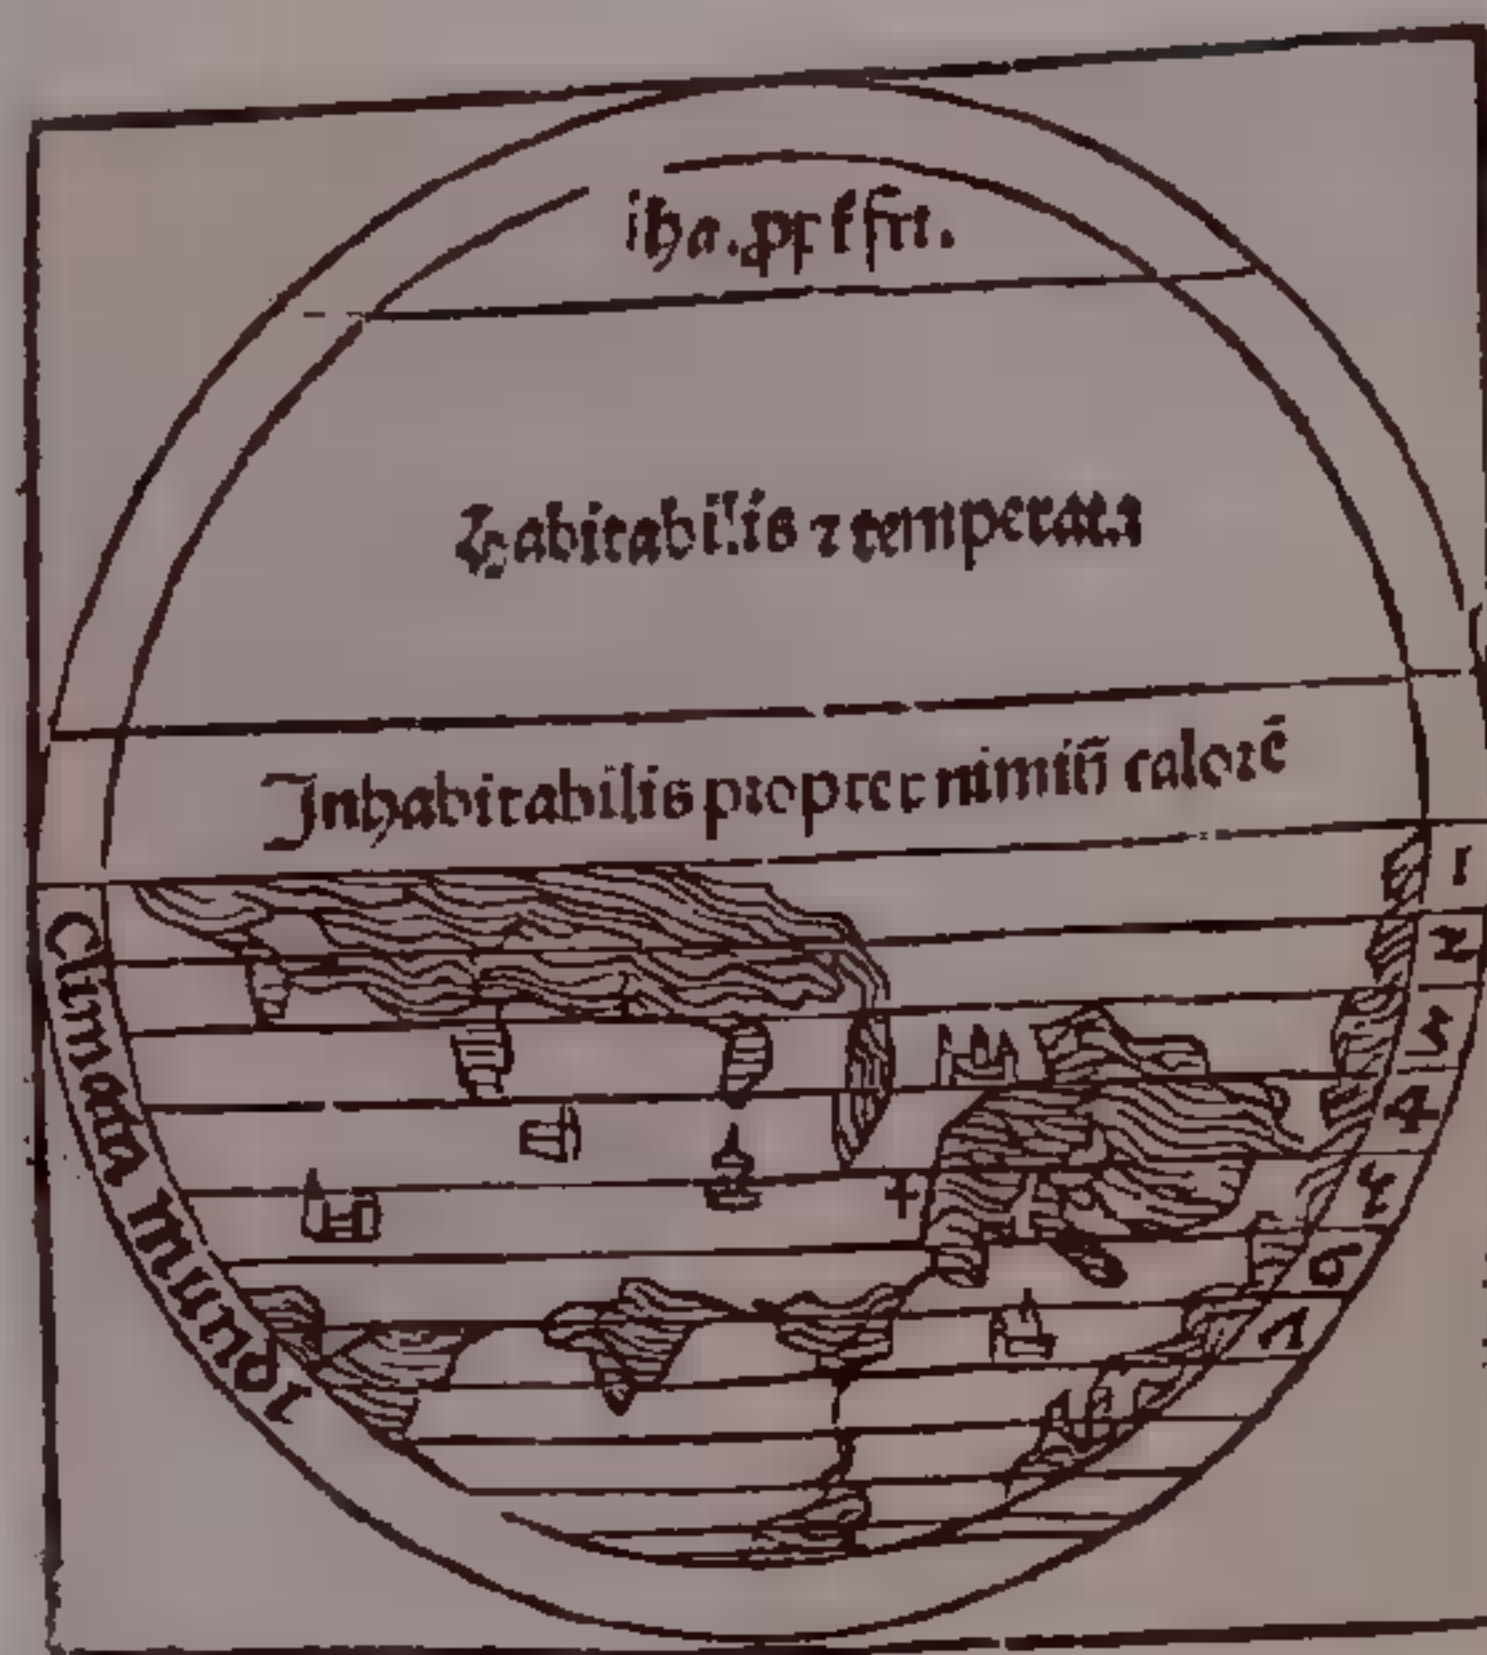 iha. ꝓṕ frt.
Habitabilis ⁊ temperata
Inhabitabilis propter nimiũ calorẽ
Climata mundi
1
2
3
4
5
6
7